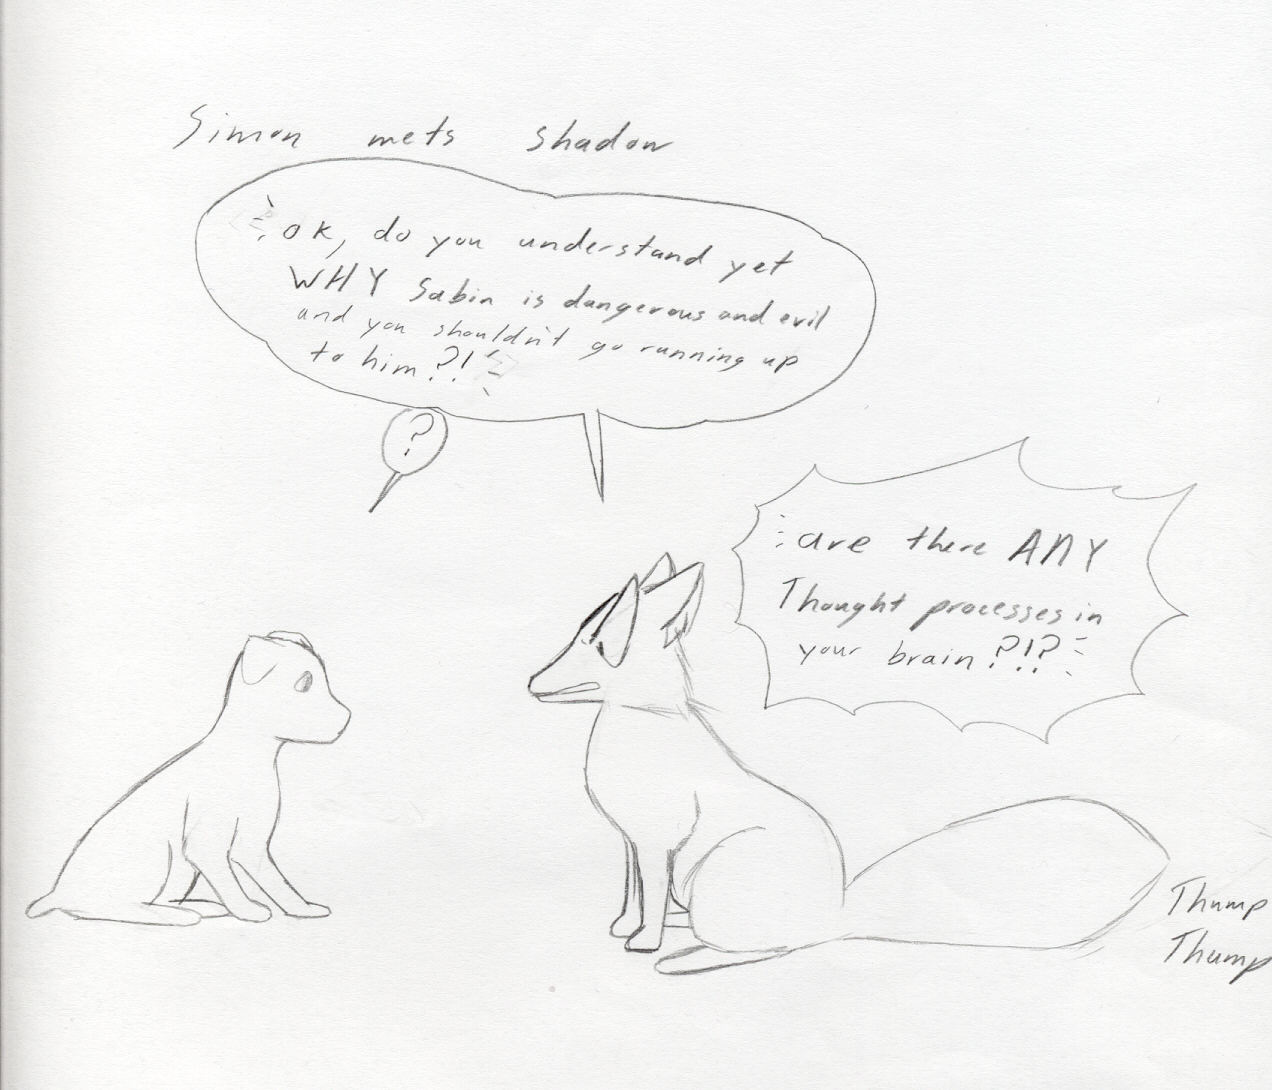 Simon mets shadow
ok, do you understand yet
WHY Sabin is dangerous and evil
and you shouldn't go running up
to him?!
?
are there ANY
Thought processes in
your brain?!?
Thump
Thump